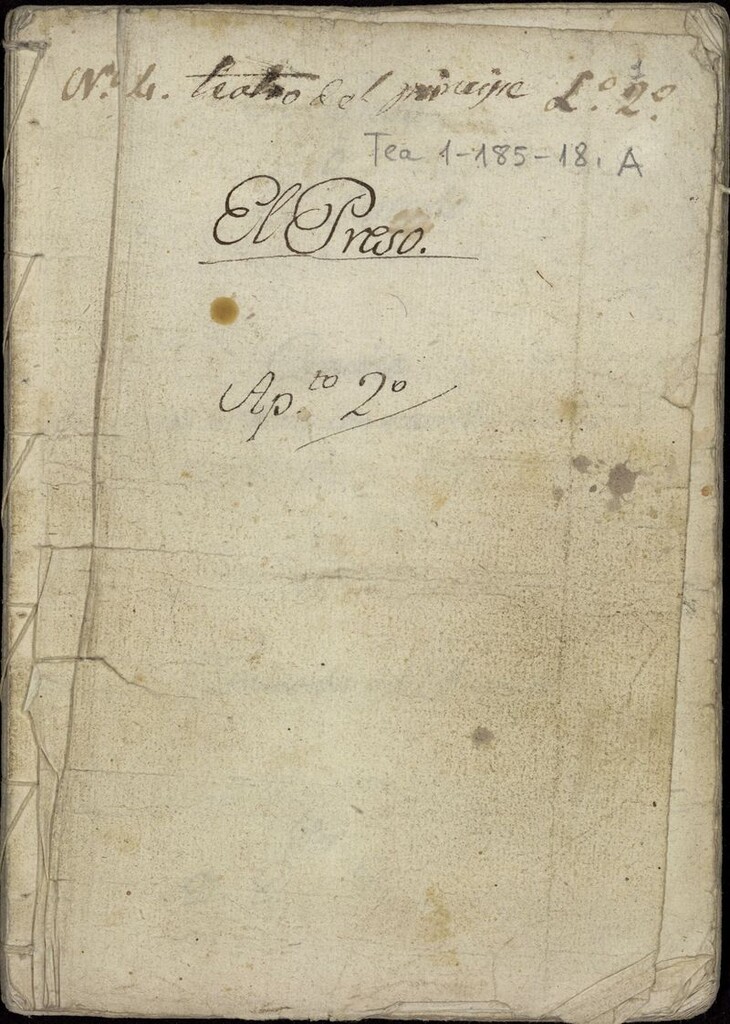 N.º 4. teatro del principe L.º 2.º
Tea 1-185-18, A
El Preso.
Ap.to 2º